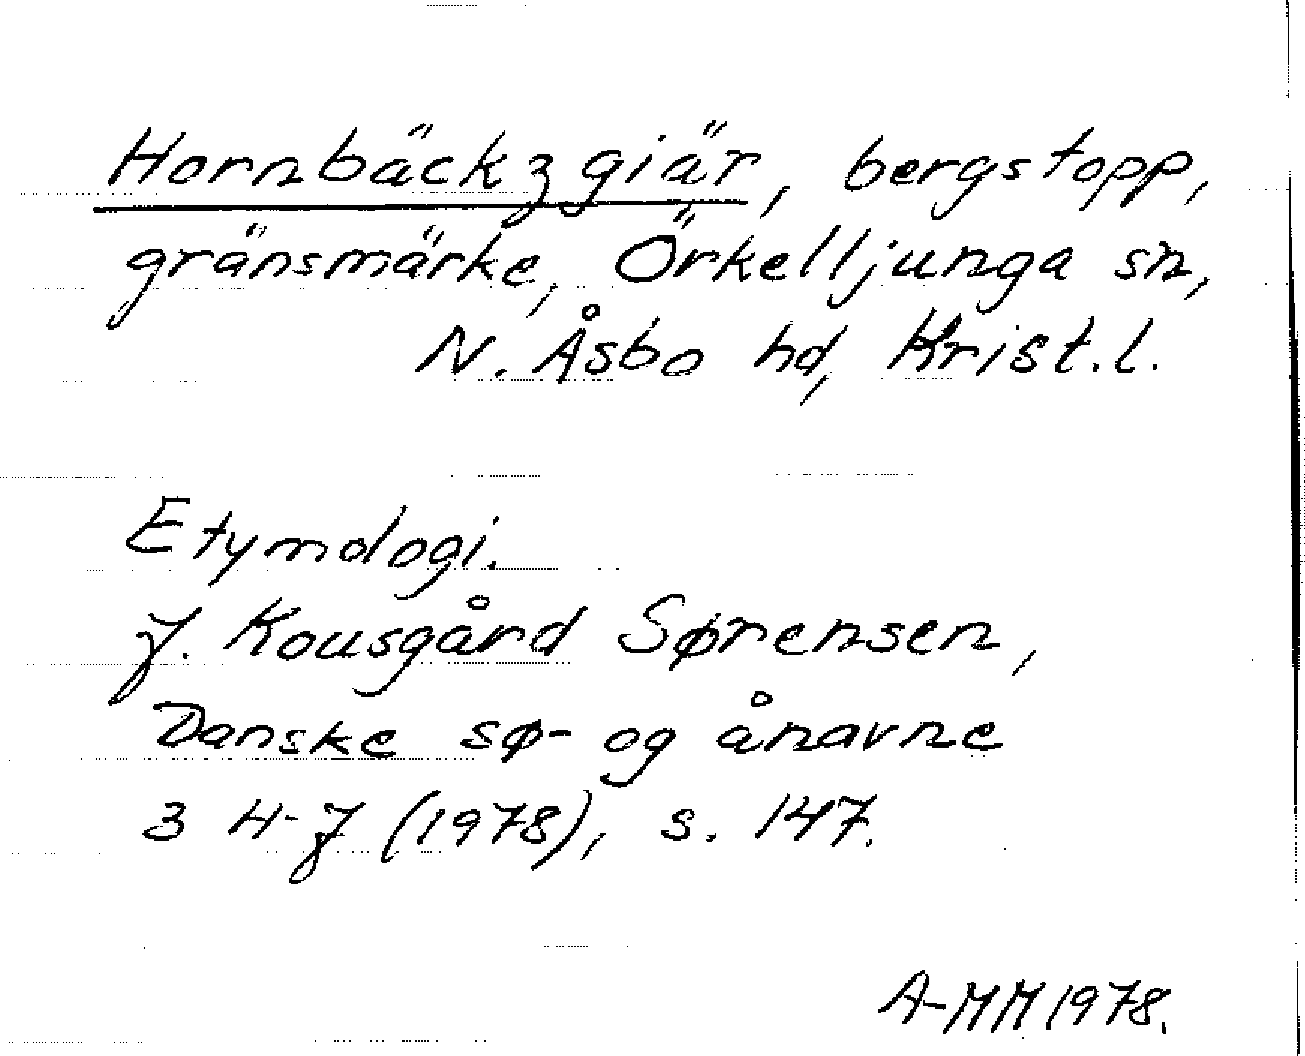 Hornbäckzgiär, bergstopp,
gränsmärke, Örkelljunga sn,
N. Åsbo hd, Krist.l.
Etymologi.
J. Kousgård Sørensen,
Danske sø- og ånavne
3 H-J (1978), s. 147.
A-MM 1978.